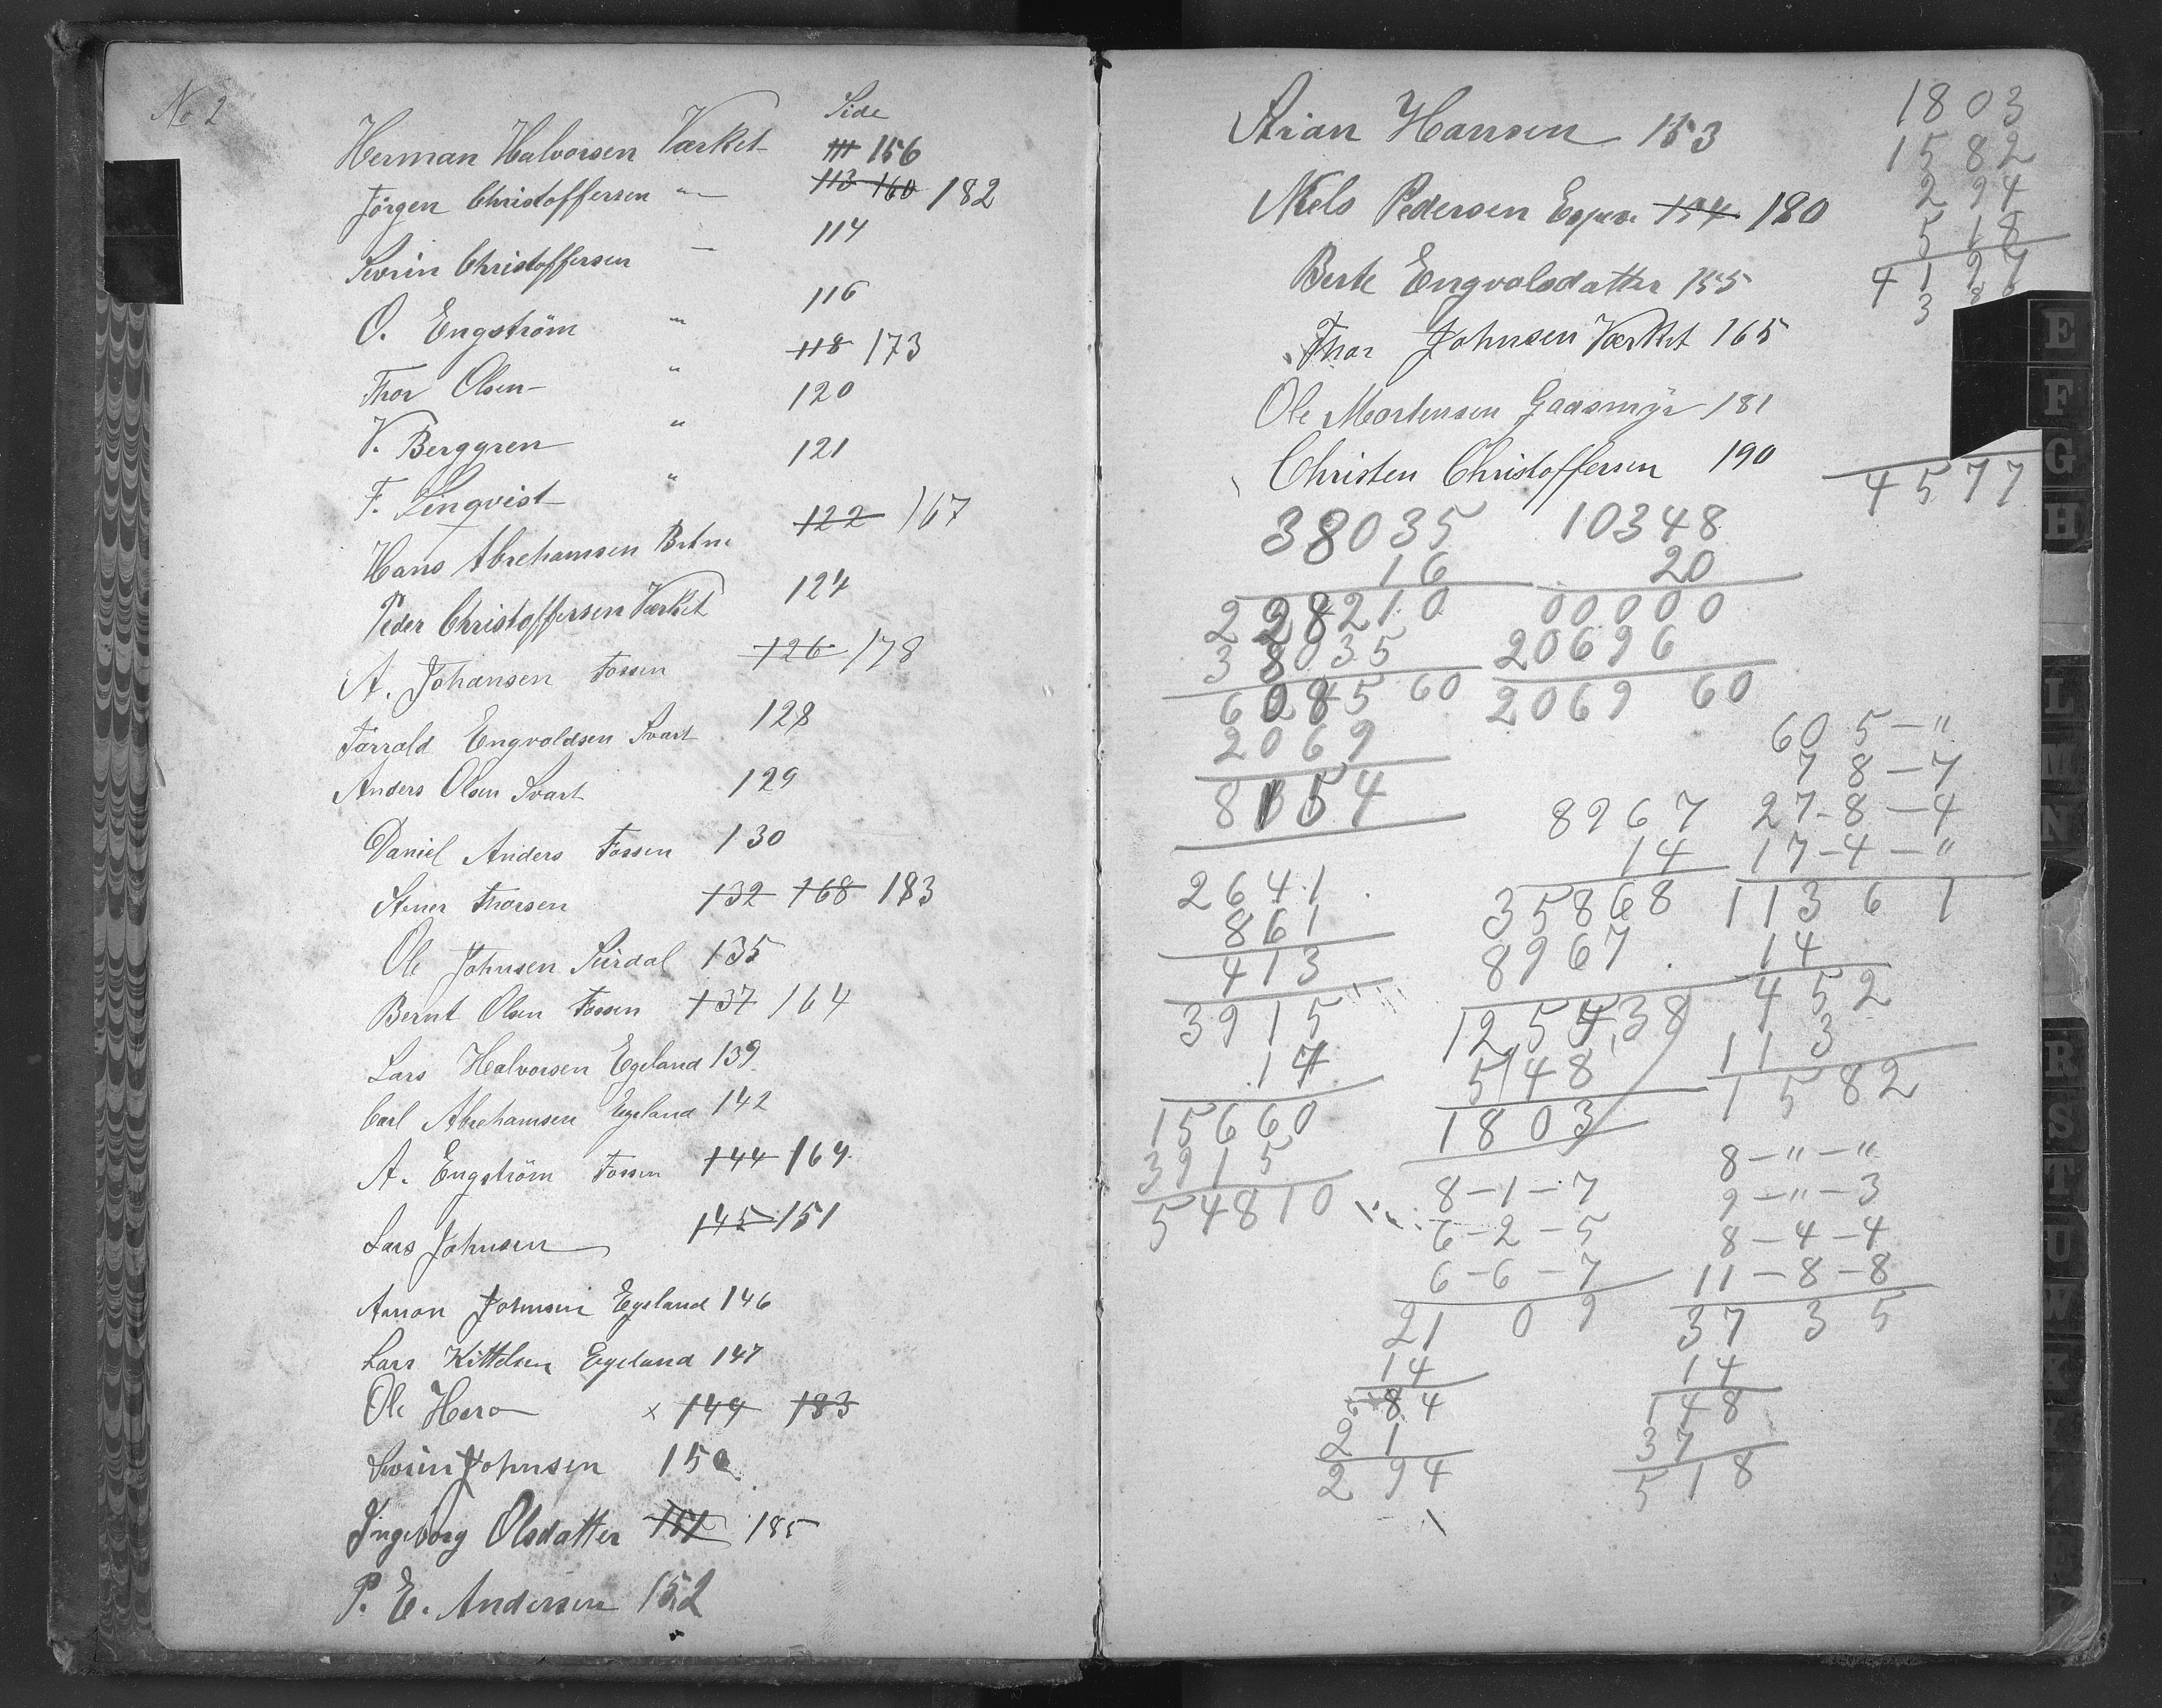 No 2
Side
Herman Halvorsen Værket 111 156
Jörgen Christoffersen " 113 160 182
Sevrin Christoffersen — 114
O. Engström " 116
Thor Olsen " 118 173
V. Berggren " 120
F. Linqvist " 121
Hans Abrehamsen 122 167
Peder Christoffersen Værket 124
A. Johansen Fossen 126 178
Torrald Engvoldsen Svart 128
Anders Olsen Svart 129
Daniel Anders Fossen 130
Stener Thorsen 132 168 183
Ole Johnsen Sirdal 135
Bernt Olsen Fossen 137 164
Lars Halvorsen Egeland 139
Carl Abrehamsen Egeland 142
A. Engström Fossen 144 169
Lars Johnsen 145 151
Amon Johnsen Egeland 146
Lars Kittelsen Egeland 147
Ole Hero x 149 183
Sevrin Johnsen 150
Ingeborg Olsdatter 151 185
P. E. Andersen 152
Arian Hansen 153
Niels Pedersen 154 180
Berte Engvolsdatter 155
Thor Johnsen Værket 165
Ole Mortensen Gaasmyr 181
Christen Christoffersen 190
1803
1582
294
518
4197
3 8
4577
38035
16
228210
38035
608560
2069
8154
10348
20
00000
20696
206960
2641
861
413
3915
14
15660
3915
54810
8967
14
35868
8967
125538
548
1803
605—"
78—7
27-8—4
17-4—"
113 6 1
14
452
113
1582
8-1-7
6-2-5
6-6-7
21 0 9
14
84
21
294
8—"—"
9—"—3
8—4—4
11—8—8
37 3 5
14
148
37
518
E
F
G
H
L
M
N
R
S
T
U
W